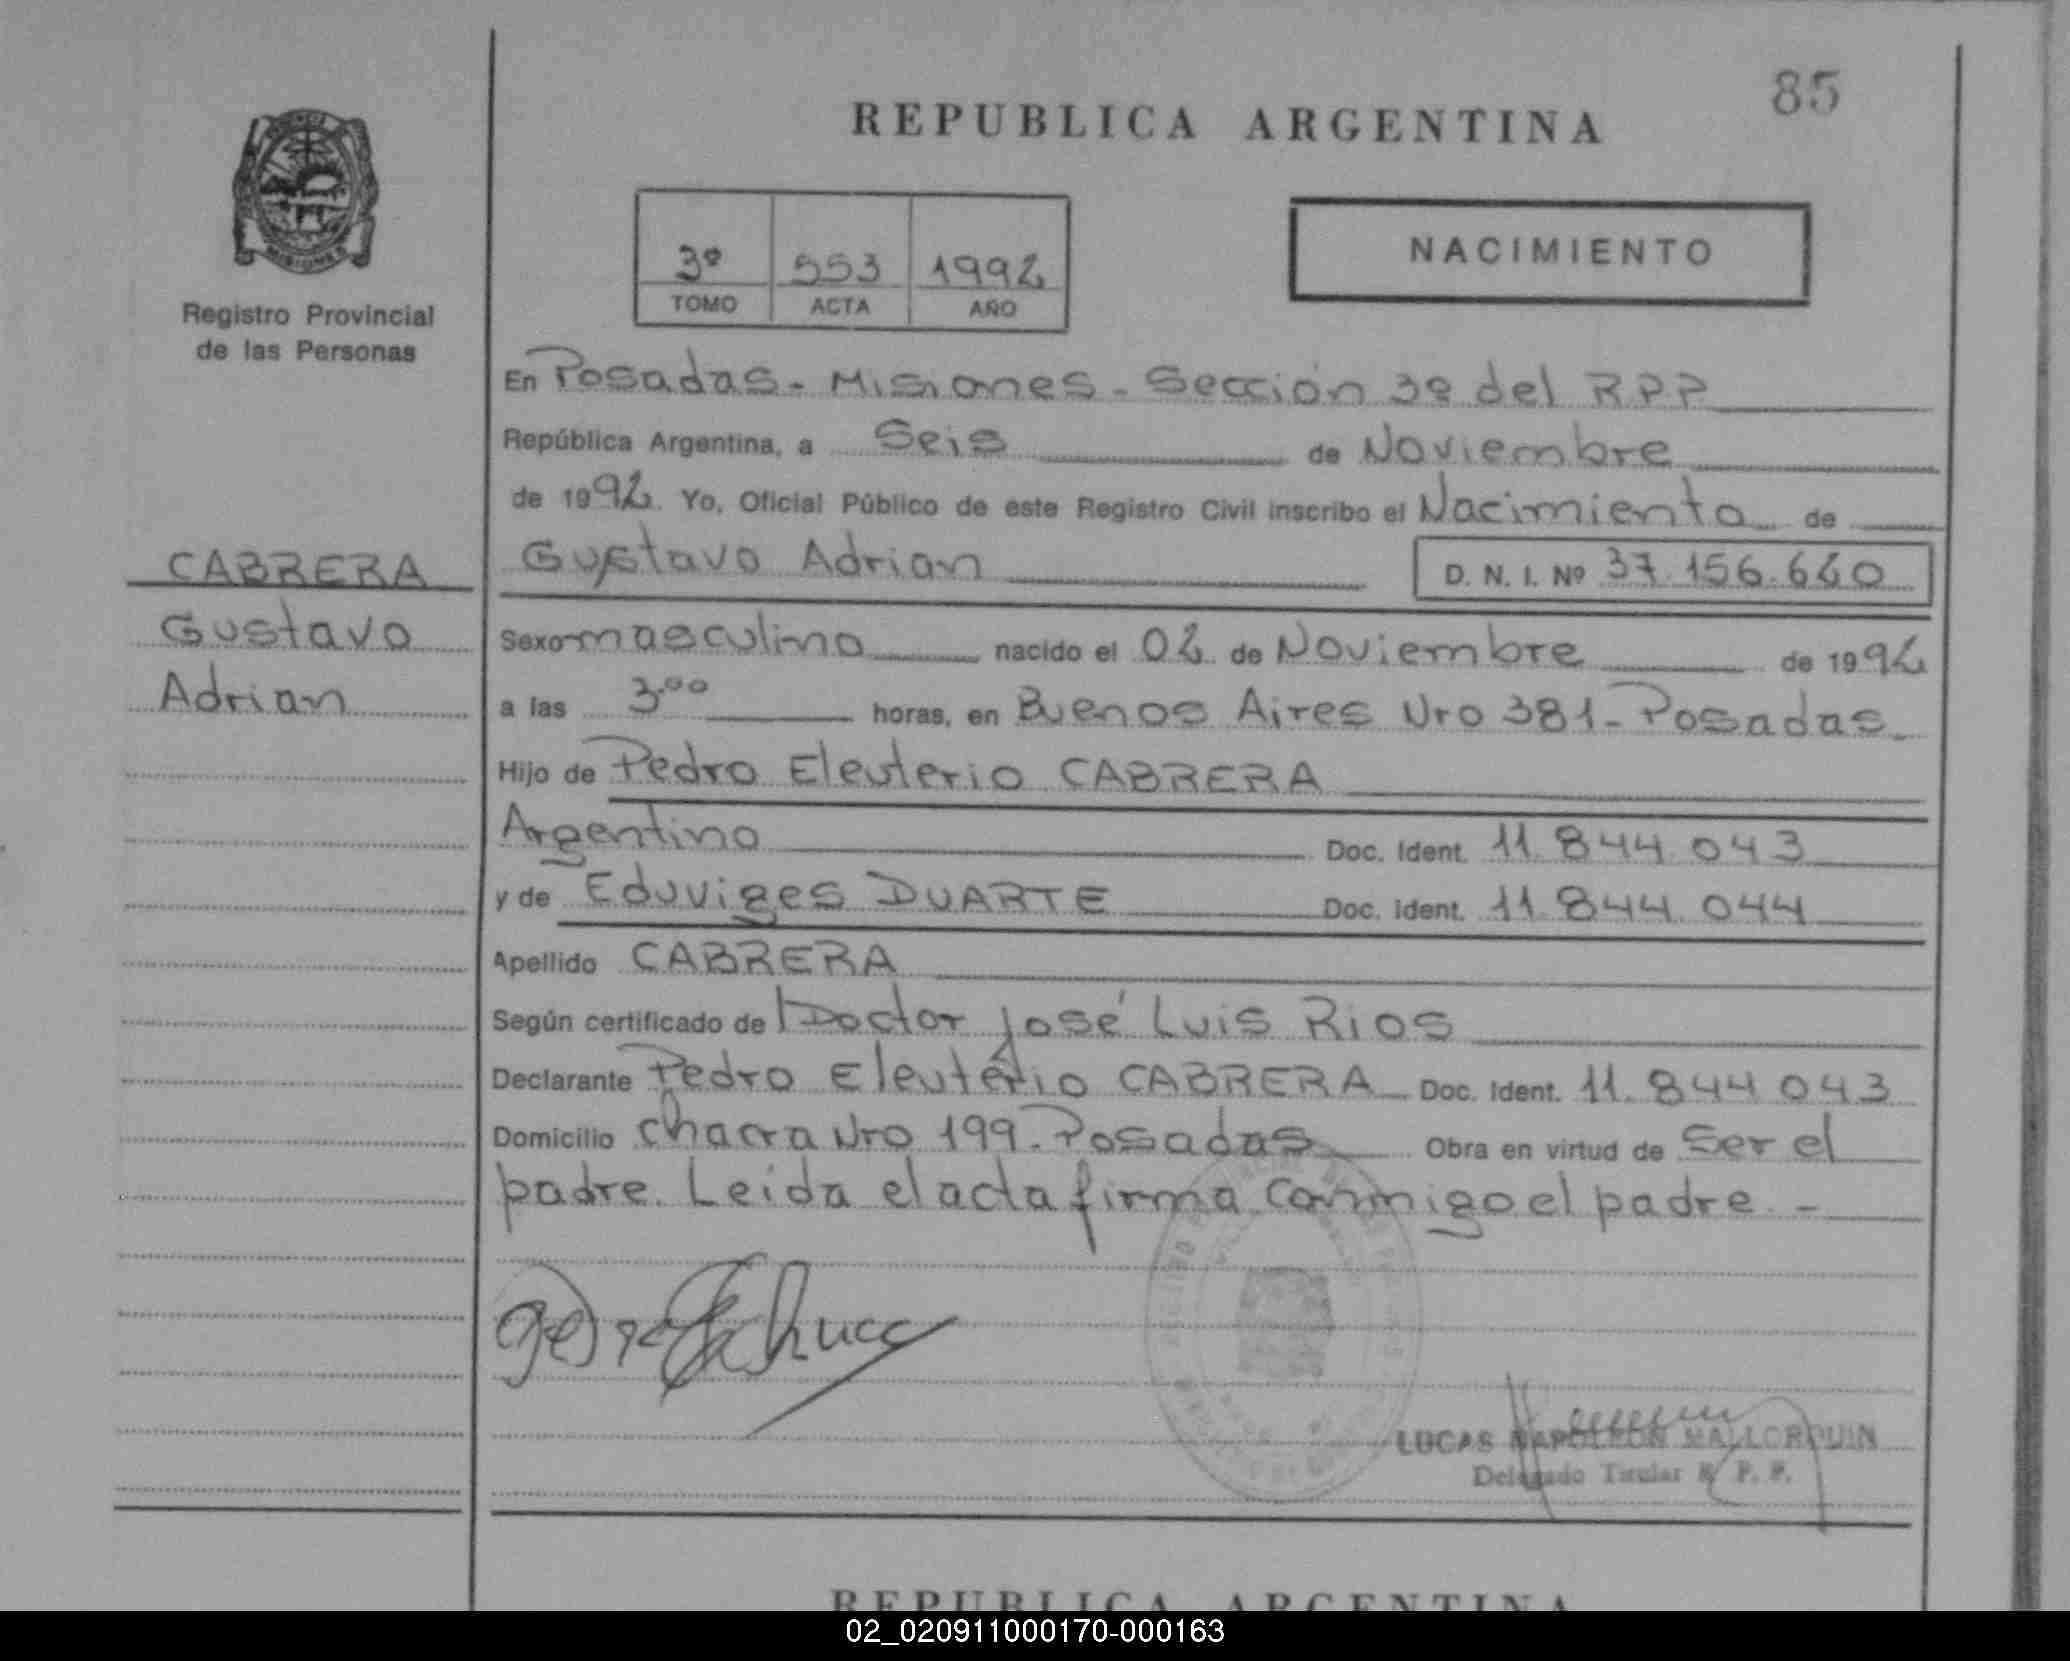 85
REPUBLICA ARGENTINA
MISIONES
Registro Provincial
de las Personas
3º 553 1992
TOMO ACTA AÑO
NACIMIENTO
En Posadas - Misiones - Sección 3º del RPP
República Argentina, a Seis de Noviembre
de 1992. Yo, Oficial Público de este Registro Civil inscribo el Nacimiento de
CABRERA
Gustavo
Adrian
Gustavo Adrian D. N. I. Nº 37.156.640
Sexo masculino nacido el 02 de Noviembre de 1992
a las 3.00 horas, en Buenos Aires Nro 381 - Posadas
Hijo de Pedro Eleuterio CABRERA
Argentino Doc. Ident. 11.844.043
y de Eduviges DUARTE Doc. Ident. 11.844.044
Apellido CABRERA
Según certificado de Doctor José Luis Rios
Declarante Pedro Eleuterio CABRERA Doc. Ident. 11.844.043
Domicilio Chacra Nro 199 - Posadas Obra en virtud de Ser el
padre. Leida el acta firma conmigo el padre. -
LUCAS NAPOLEON MALLORQUIN
Delegado Titular R. P. P.
REPUBLICA ARGENTINA
02_020911000170-000163